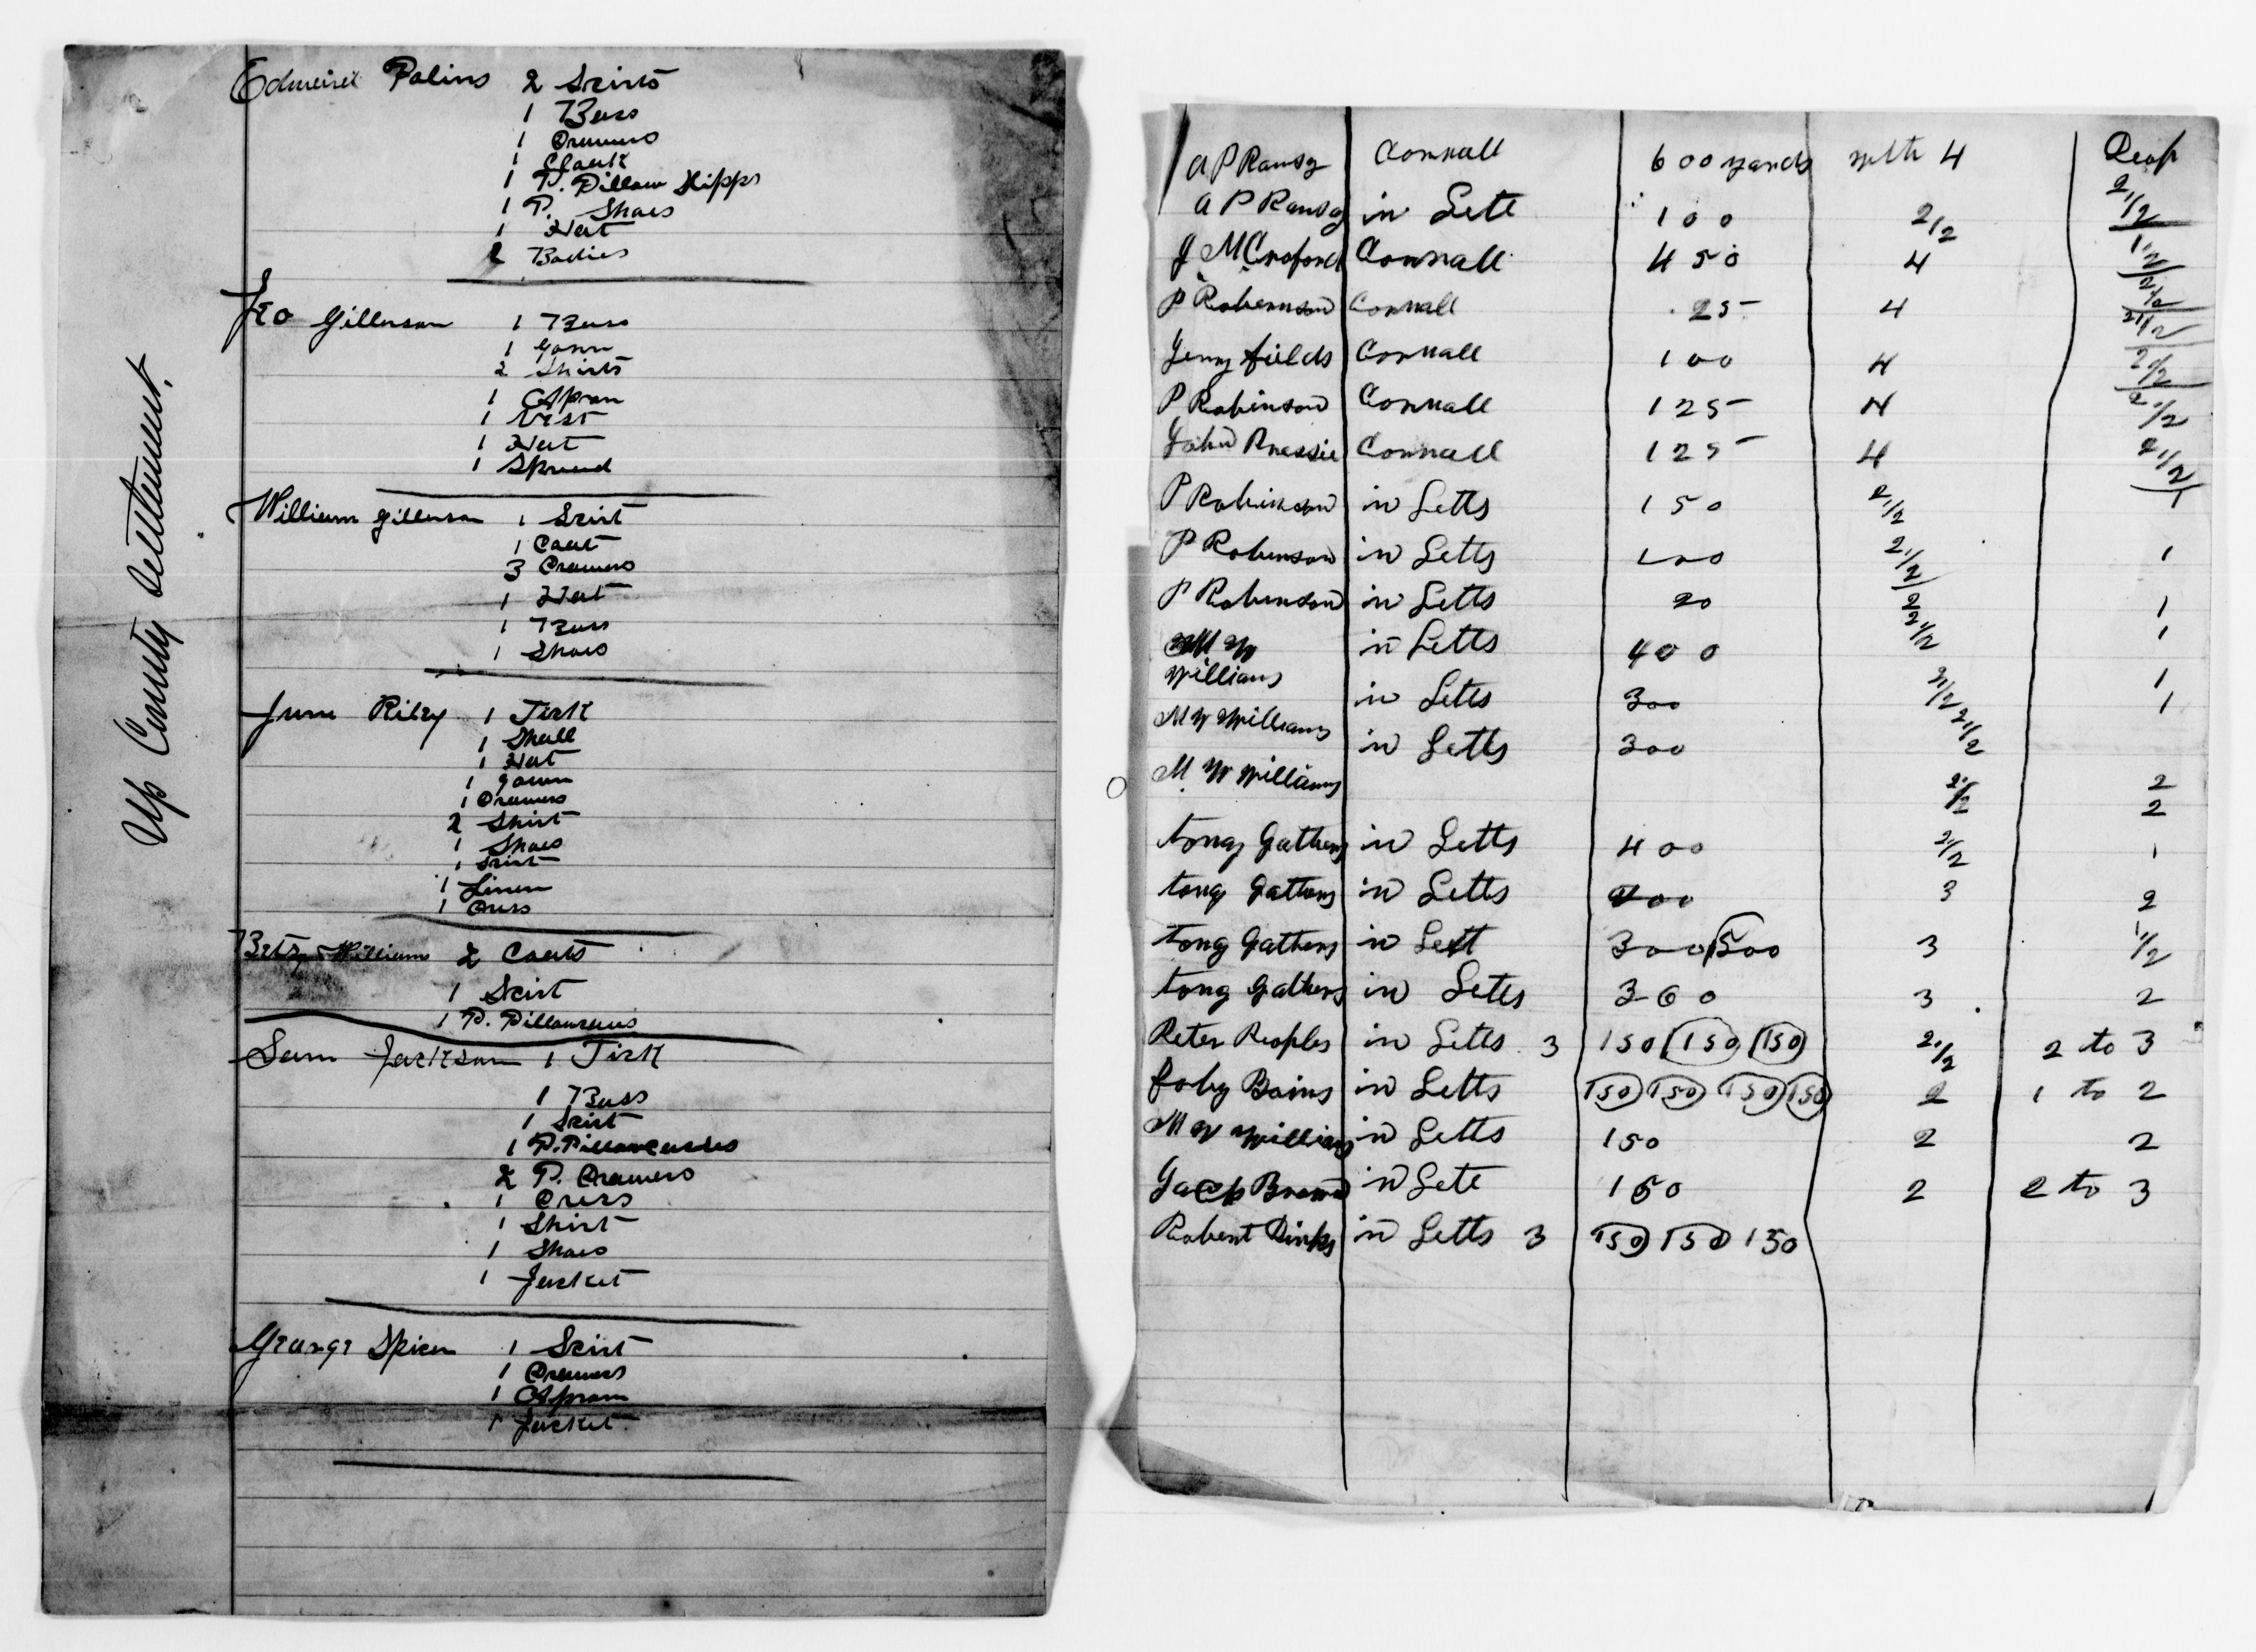 Up County Settlement.
Edward Polins 2 Skirts
1 Bass
1 Drawers
1 Cloack
1 P. Pillow Slipps
1 P. Shoes
1 Hat
2 Bodies
Geo Gillerson 1 Bass
1 Gown
2 Shirts
1 Apron
1 Vest
1 Hat
1 Spread
William Gillerson 1 Skirt
1 Coat
3 Drawers
1 Hat
1 Bass
1 Shoes
June Riley 1 Tick
1 Shall
1 Hat
1 Gown
1 Drawers
2 Shirt
1 Shoes
1 Skirt
1 Linen
1 Dress
Betsy Williams 2 Coats
1 Skirt
1 P.
Sam Jackson 1 Tick
1 Bass
1 Skirt
1 P. Pillowcases
2 P. Drawers
1 Dress
1 Shirt
1 Shoes
1 Jacket
George Spicer 1 Skirt
1 Drawers
1 Apron
1 Jacket
A P Ramsy Connall 600 yards with 4 Deap
A P Ramsy in Lett 100 2/2 2 1/2
J M Croford Connall 450 4 1/2
P Robernson Connall 25 4
Jenny fields Connall 100 4 2 1/2
P Robinson Connall 125 4 2 1/2
John Connall 125 4 2 1/2
P Robinson in Letts 150 2 1/2 1
P Robenson in Letts 100 2 1/2 1
P Robenson in Letts 20 1
M W Williams in Letts 400 2 1/2 1
M W Williams in Letts 300 2 1/2 1
M. W Williams in Letts 300 2 1/2 2
2 1/2 2
tony Gathers in Letts 400 2 1/2 1
tony Gathers in Letts 3 2
tony Gathers in Lett 300 500 3 1/2
tony Gathers in Letts 360 3 2
Peter Peoples in Letts 3 150 150 150 2 1/2 2 to 3
foby Bains in Letts 150 150 150 150 2 1 to 2
M W Williams in Letts 150 2 2
Jacop Brown in Lett 150 2 2 to 3
Robert Dinks in Letts 3 150 150 150